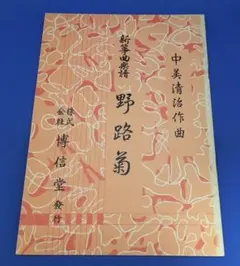 中美清治作曲
新箏曲楽譜
野路菊
株式会社 博信堂 發行